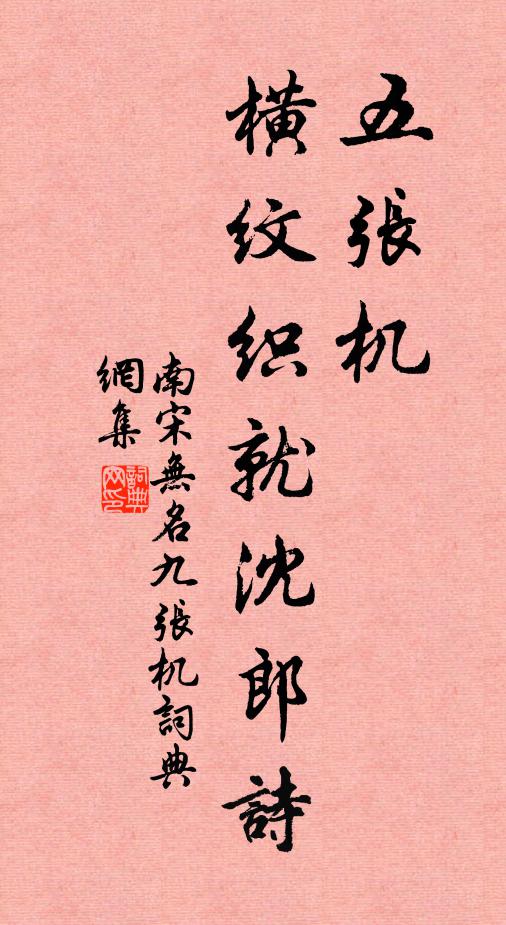 五張机
橫纹织就沈郎詩
南宋無名九張机詞典
網集
詞典网印